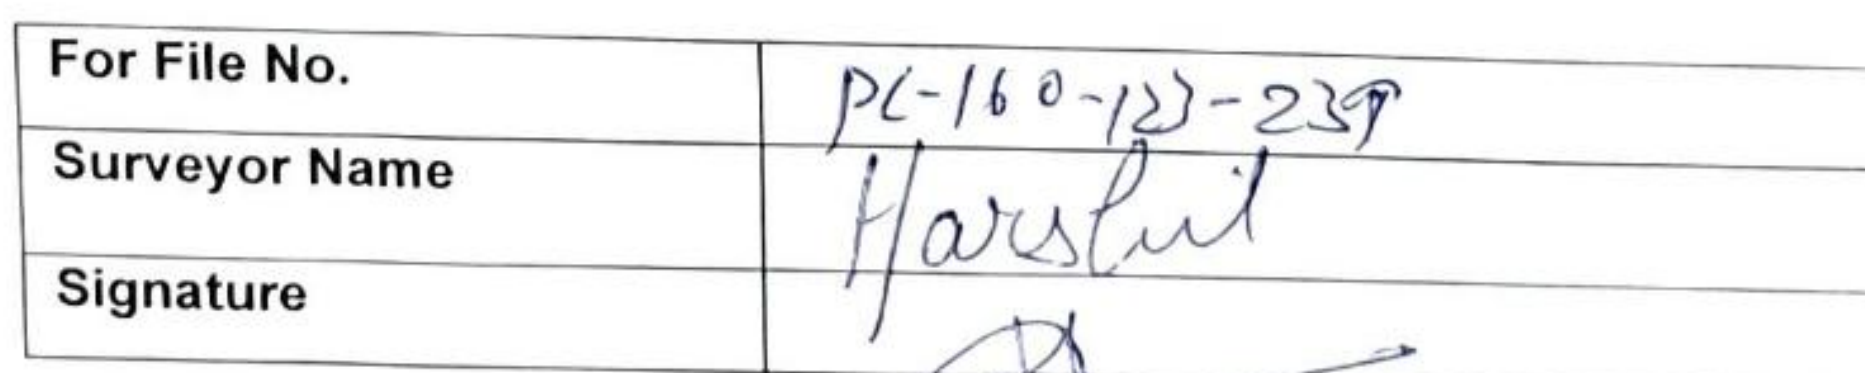 For File No. PL-160-123-239
Surveyor Name Harshit
Signature